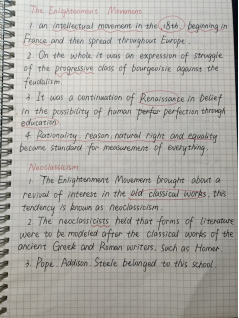 The Enlightenment Movement
1. an intellectual movement in the 18th. beginning in
France and then spread throughout Europe.
2. On the whole it was an expression of struggle
of the progressive class of bourgeoisie against the
feudalism.
3. It was a continuation of Renaissance in belief
in the possibility of human perfection through
education.
4. Rationality, reason, natural right and equality
became standard for measurement of everything.
Neoclassicism
The Enlightenment Movement brought about a
revival of interest in the old classical works, this
tendency is known as neoclassicism.
2. The neoclassicists held that forms of literature
were to be modeled after the classical works of the
ancient Greek and Roman writers, such as Homer.
3. Pope. Addison. Steele belonged to this school.